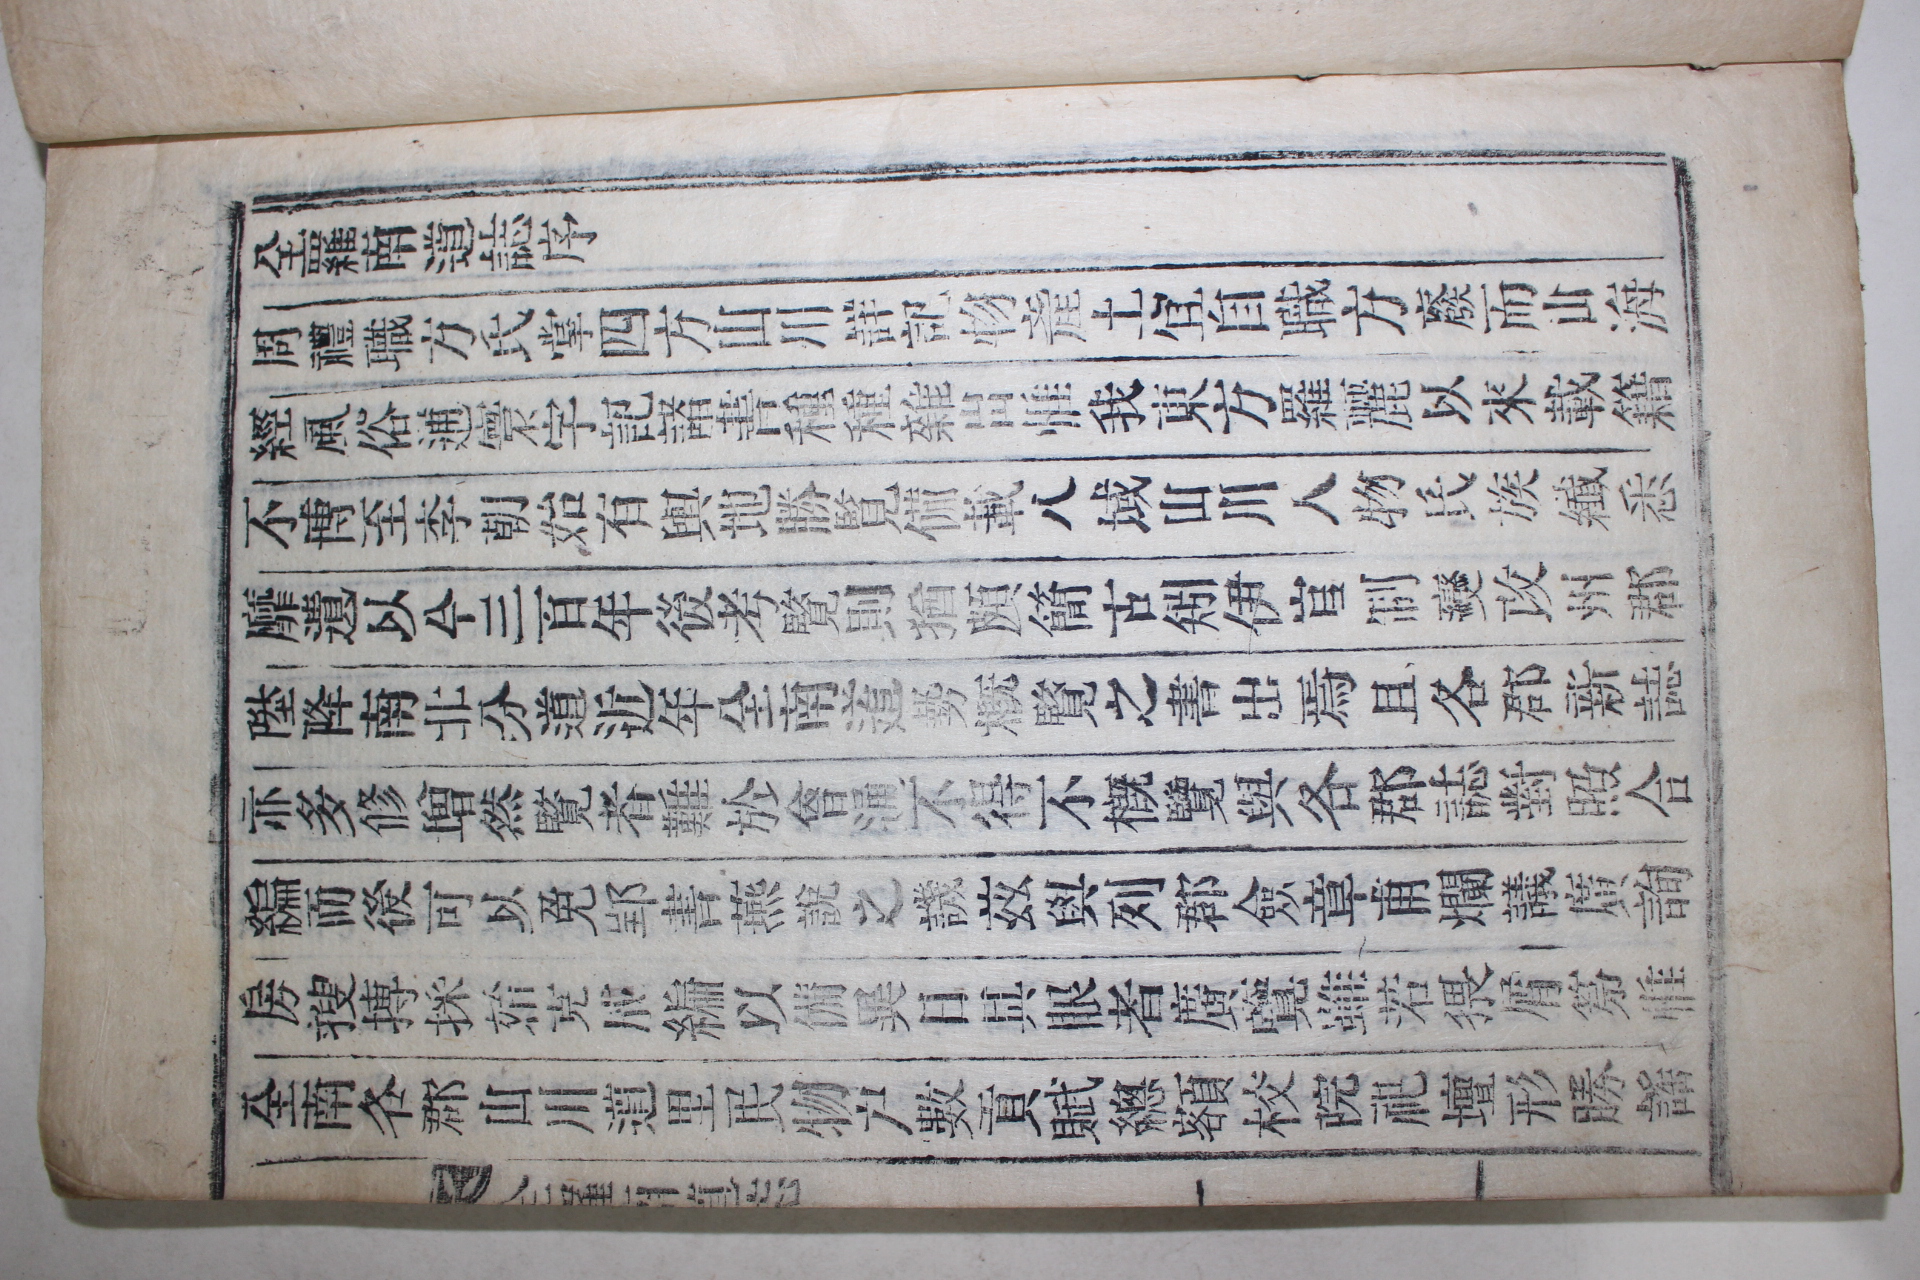 全羅南道誌序
周禮職方氏掌四方山川詳記物産土宜自職方廢而山海
經風俗通寰宇記諸書種種雜出惟我東方羅麗以來載籍
不博至李朝始有輿地勝覽備載八域山川人物氏族纖悉
靡遺以今三百年後考覽則猶頗簡古矧伊官制變改州郡
陞降南北分道近年全南道勢槪覽之書出焉且各郡新誌
亦多修增然覽者難於會通不得不槪覽與各郡誌對照合
編而後可以免郢書燕說之譏玆與列郡僉章甫爛議廣詢
房搜摶採始克成編以備異日具眼者廣覽雖若猥屑第惟
全南各郡山川道里民物户數貢賦總額校院祀壇形勝謠
全羅南道誌